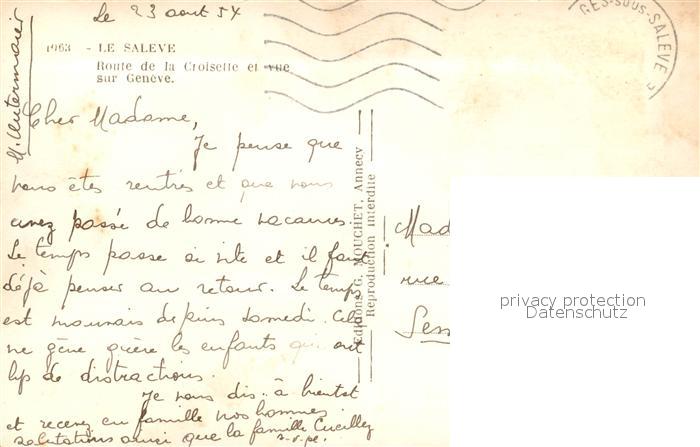 Le 23 aout 54
1963 - LE SALÈVE
Route de la Croisette et vue
sur Genève.
GES-SOUS-SALÈVE
Cher Madame,
Je pense que
vous êtes rentrés et que vous
avez passé de bonne vacances.
Le temps passe si vite et il faut
déjà penser au retour. Le temps
est mauvais depuis samedi. Cela
ne gêne guère les enfants qui ont
de distractions.
Je vous dis à bientot
et recevez en famille nos bonnes
salutations ainsi que la famille
Editions G. MOUCHET, Annecy
Reproduction interdite
Mad
rue
privacy protection
Datenschutz